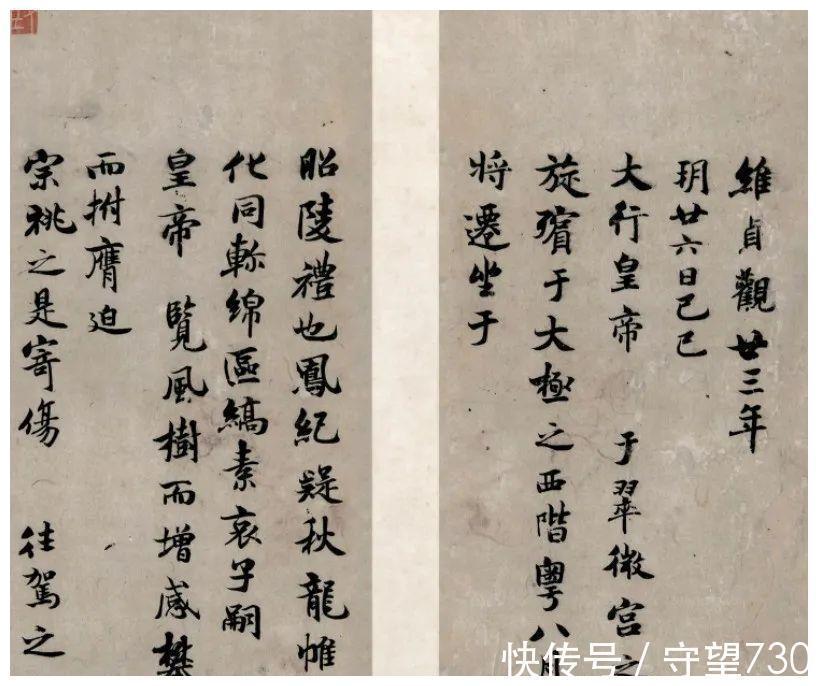 維貞觀廿三年
玥廿六日己巳
大行皇帝 于翠微宮之
旋殯于大極之西階粵八月
將遷坐于
昭陵禮也鳳紀疑秋龍帷
化同軫綿區縞素哀子嗣
皇帝 覽風樹而增感攀
而拊膺迫
宗祧之是寄傷 往駕之
快传号 / 守望730